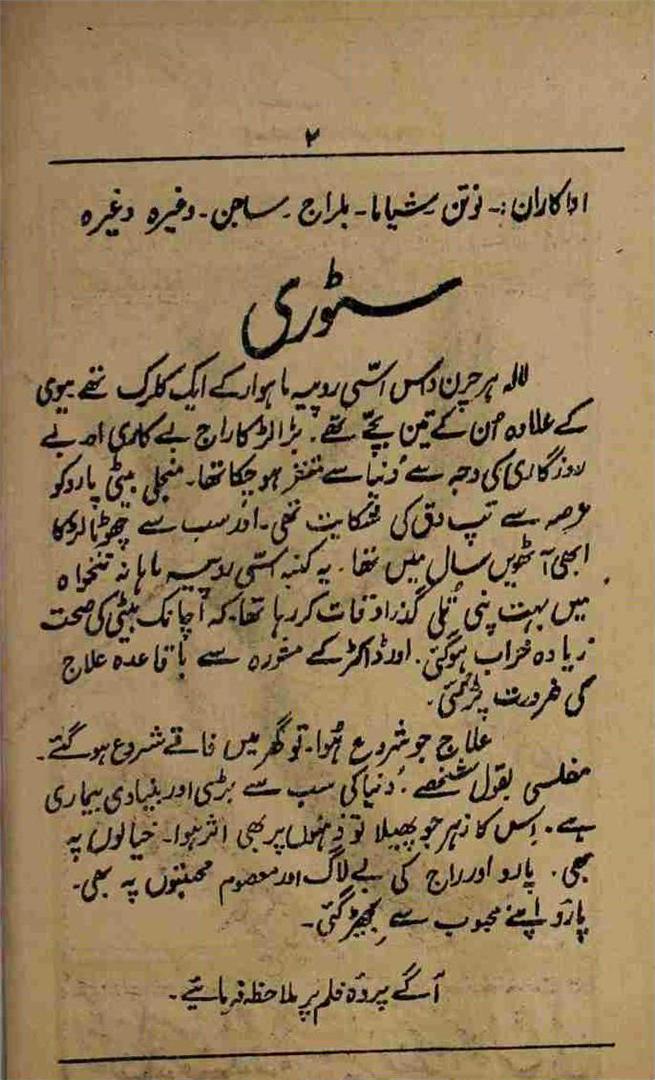 ۲
اداکاران:۔ نوتن۔ شیاما۔ بلراج۔ ساجن۔ وغیرہ وغیرہ
سٹوری
لالہ ہرچرن داس اسّی روپیہ ماہوار کے ایک کلرک تھے بیوی
کے علاوہ اُن کے تین بچّے تھے۔ بڑا لڑکا راج بے کاری اور بے
روزگاری کی وجہ سے دُنیا سے متنفر ہو چکا تھا۔ منجلی بیٹی پارو کو
عرصہ سے تپ دق کی شکایت تھی۔ اور سب سے چھوٹا لڑکا
ابھی آٹھویں سال میں تھا۔ یہ کنبہ اسّی روپیہ ماہانہ تنخواہ
میں بہت پنی تُلی گذر اوقات کر رہا تھا۔ کہ اچانک بیٹی کی صحت
زیادہ خراب ہوگئی۔ اور ڈاکٹر کے مشورہ سے باقاعدہ علاج
کی ضرورت پڑ گئی۔
علاج جو شروع ہُوا۔ تو گھر میں فاقے شروع ہو گئے۔
مفلسی بقول شخصے۔ دُنیا کی سب سے بڑی اور بنیادی بیماری
ہے۔ اِس کا زہر جو پھیلا تو ذہنوں پر بھی اثر ہوا۔ خیالوں پہ
بھی۔ پارو اور راج کی بے لاگ اور معصوم محبتوں پہ بھی۔
پارو اپنے محبوب سے بچھڑ گئی۔
آگے پردہ فلم پر ملاحظہ فرمائیے۔